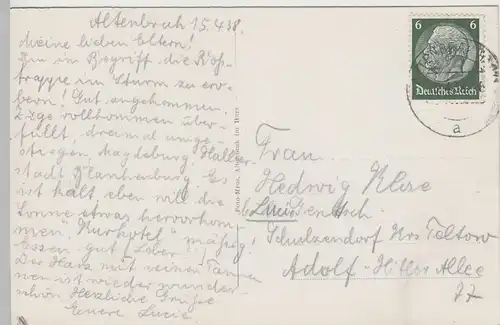 Altenbrak 15.4.38.
Meine lieben Eltern!
Im im Begriff, die Roß-
trappe im Sturm zu ero-
bern! Gut angekommen,
Züge vollkommen über-
füllt, dreimal umge-
stiegen, Magdeburg, Halber-
stadt, Blankenburg. Es
ist kalt, eben will die
Sonne etwas hervorkom-
men. "Kurhotel" mäßig,
Essen gut (Leber!)
Der Harz mit seinen Tannen
ist wieder wunder-
schön. Herzliche Grüße
Euere Lucie
Foto-Mene, Altenbrak im Harz
6 6
Deutsches Reich
a
Frau
Hedwig Klese
Schulzendorf Krs Teltow
Adolf-Hitler Allee
77